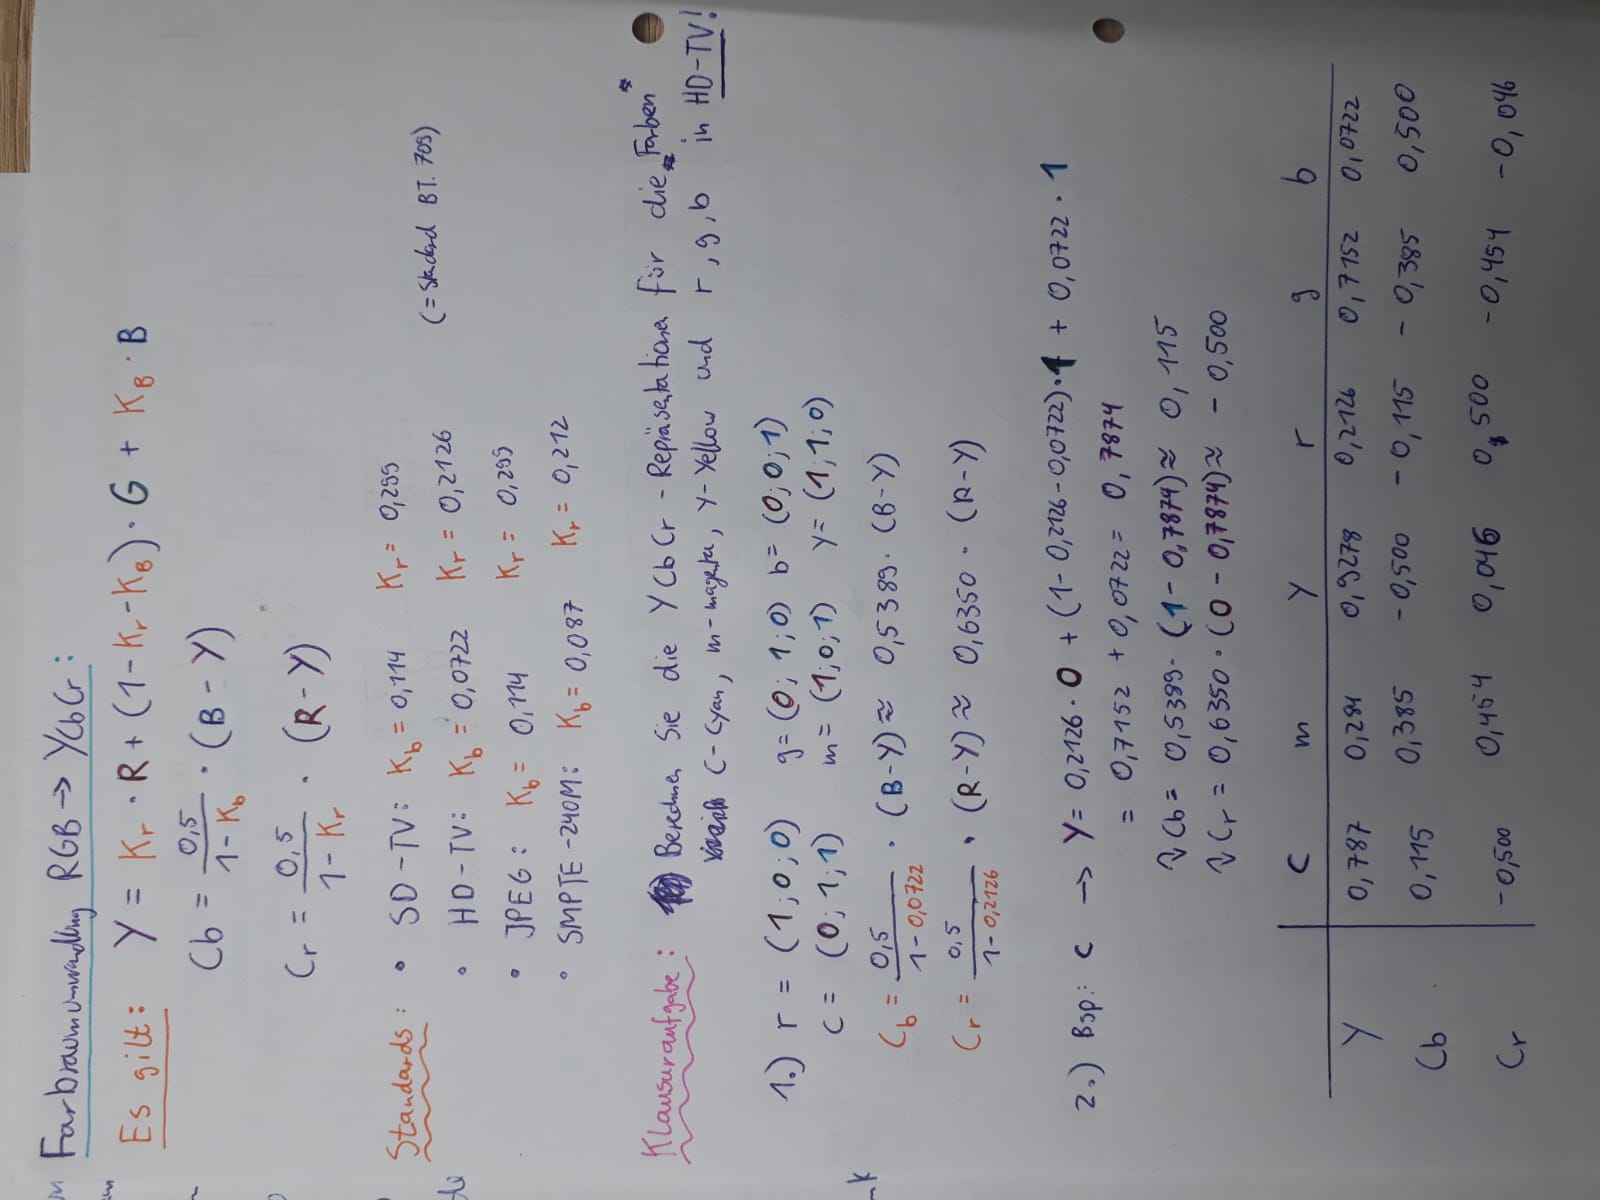 Farbraumumwandlung RGB → YCbCr:
Es gilt: Y = Kr · R + (1 - Kr - KB) · G + KB · B
Cb = 0,5 / (1 - Kb) · (B - Y)
Cr = 0,5 / (1 - Kr) · (R - Y)
Standards: • SD-TV: Kb = 0,114 Kr = 0,299
• HD-TV: Kb = 0,0722 Kr = 0,2126 (= Standard BT. 709)
• JPEG: Kb = 0,114 Kr = 0,299
• SMPTE-240M: Kb = 0,087 Kr = 0,212
Klausuraufgabe: Berechnen Sie die YCbCr-Repräsentationen für die Farben
C-Cyan, m-magenta, y-Yellow und r, g, b in HD-TV!
1.) r = (1; 0; 0) g = (0; 1; 0) b = (0; 0; 1)
c = (0; 1; 1) m = (1; 0; 1) y = (1; 1; 0)
Cb = 0,5 / (1 - 0,0722) · (B - Y) ≈ 0,5389 · (B - Y)
Cr = 0,5 / (1 - 0,2126) · (R - Y) ≈ 0,6350 · (R - Y)
2.) Bsp.: c → Y = 0,2126 · 0 + (1 - 0,2126 - 0,0722) · 1 + 0,0722 · 1
= 0,7152 + 0,0722 = 0,7874
Cb = 0,5389 · (1 - 0,7874) ≈ 0,115
Cr = 0,6350 · (0 - 0,7874) ≈ - 0,500
c m y r g b
Y 0,787 0,284 0,9278 0,2126 0,7152 0,0722
Cb 0,115 0,385 -0,500 -0,115 -0,385 0,500
Cr -0,500 0,454 0,046 0,500 -0,454 -0,046